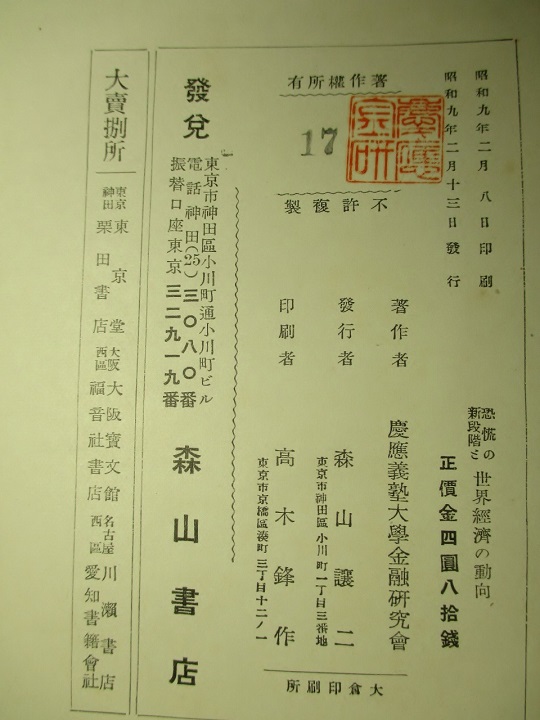 昭和九年二月八日印刷
昭和九年二月十三日發行
恐慌の
新段階と
世界經濟の動向
正價金四圓八拾錢
著作權所有
慶應
金研
17
不許複製
著作者
慶應義塾大學金融研究會
發行者
森山讓二
東京市神田區小川町一丁目三番地
印刷者
高木鋒作
東京市京橋區湊町三丁目十二ノ一
大倉印刷所
發兌
東京市神田區小川町通小川町ビル
電話神田(25)三〇八〇番
振替口座東京三二九一九番
森山書店
大賣捌所
東京
神田
東京堂
栗田書店
大阪
西區
大阪寶文館
福音社書店
名古屋
西區
川瀨書店
愛知書籍會社